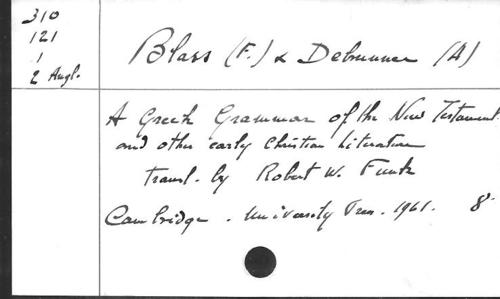 310
121
1
2 Angl.
Blass (F.) & Debrunner (A)
A Greek Grammar of the New Testament
and other early Christian Literature
transl. by Robert W. Funk
Cambridge . University Press . 1961. 8°